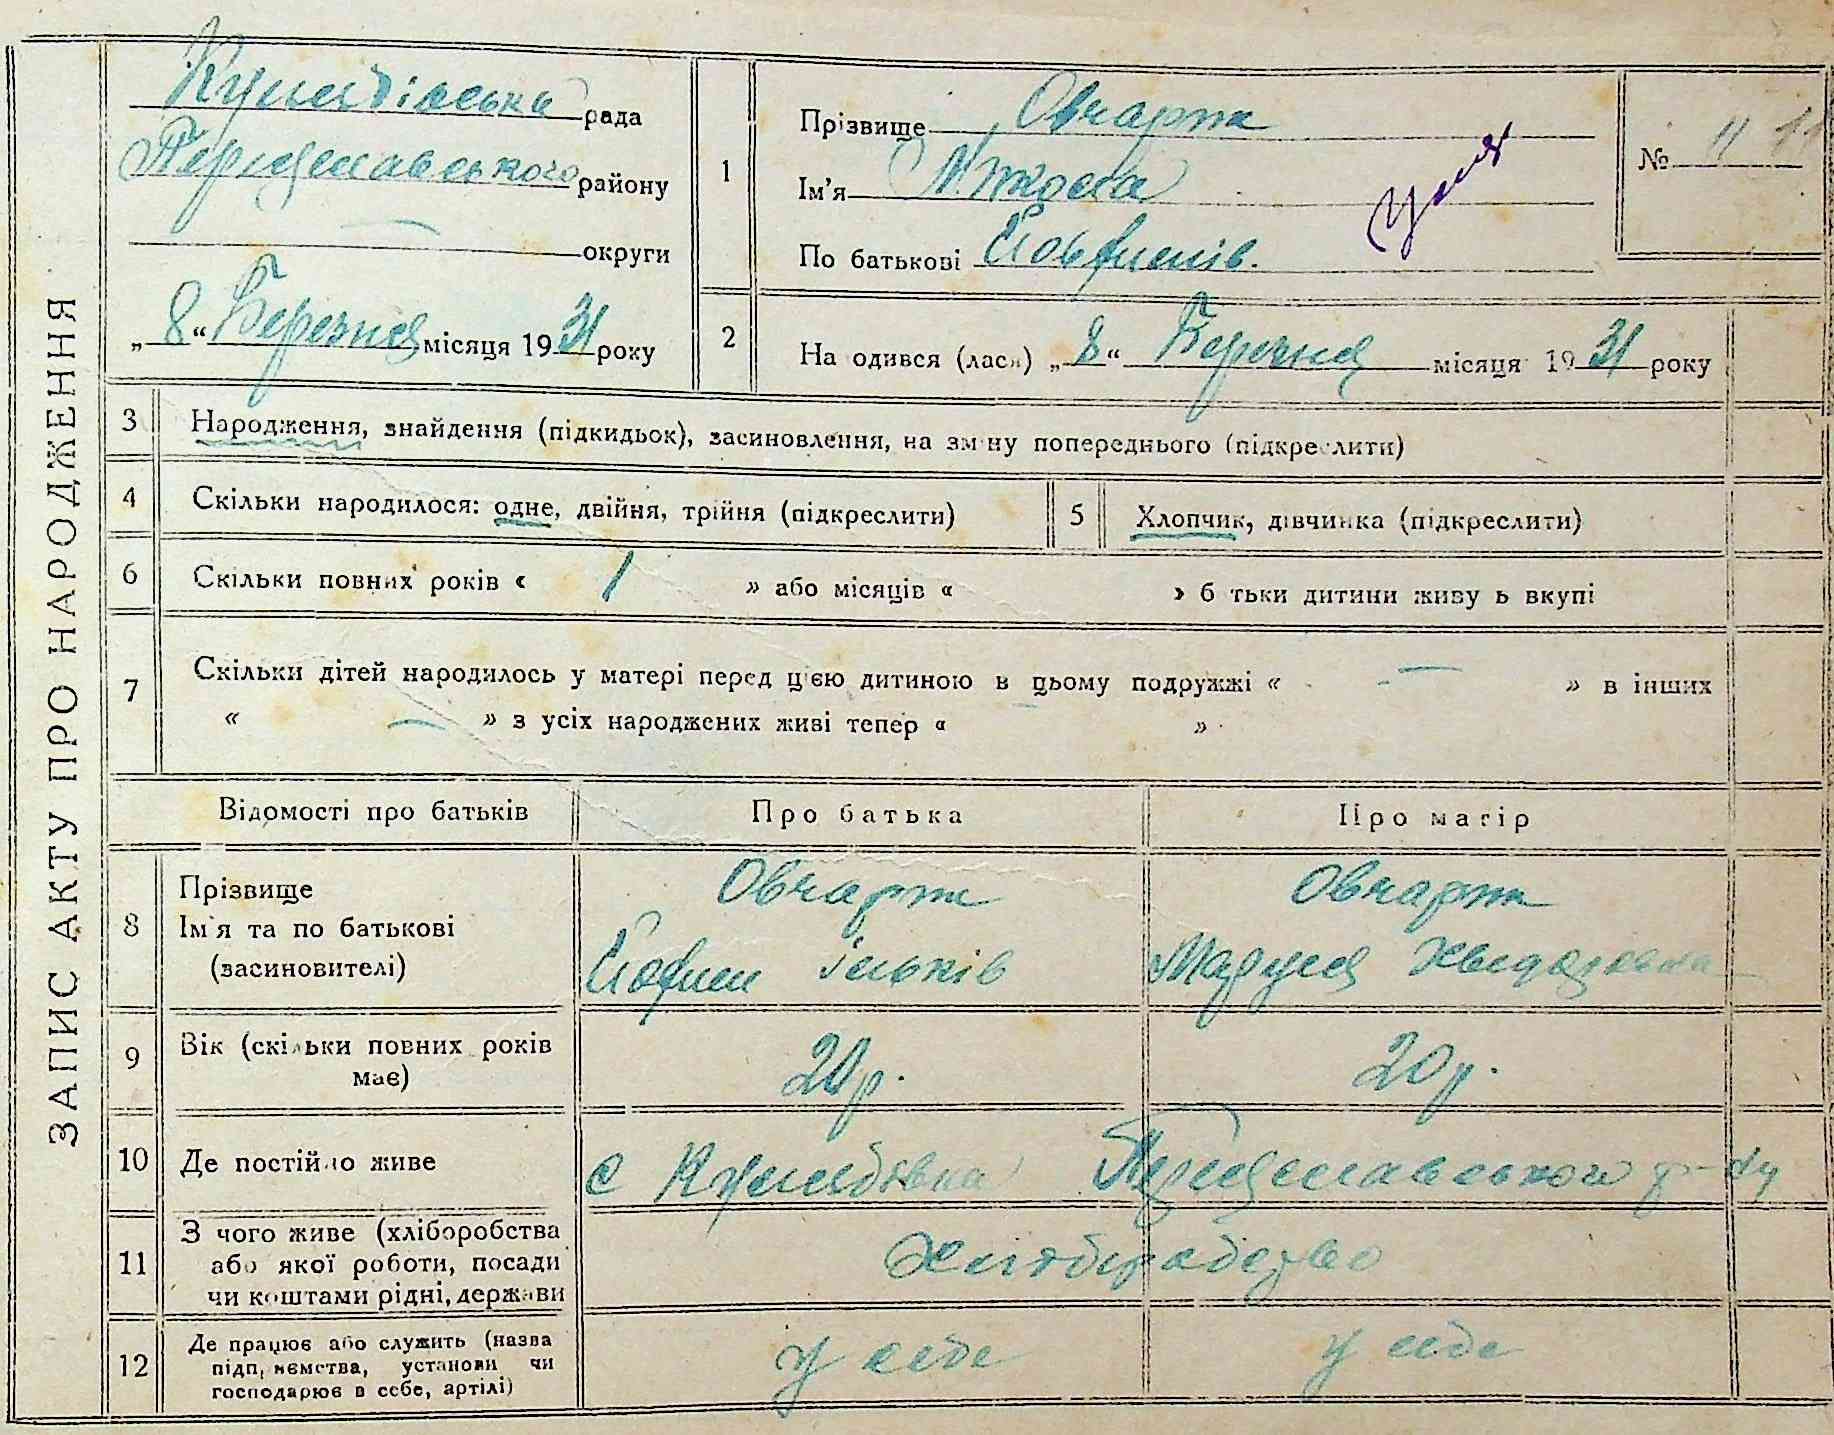 ЗАПИС АКТУ ПРО НАРОДЖЕННЯ
рада
Переяславського району
округи
„8“ Березня місяця 1931 року
1
Прізвище Овчарук
Ім'я Микола
По батькові
№ 11 11
2
На одився (лася) „8“ Березня місяця 1931 року
3 Народження, знайдення (підкидьок), засиновлення, на зміну попереднього (підкреслити)
4 Скільки народилося: одне, двійня, трійня (підкреслити)
5 Хлопчик, дівчинка (підкреслити)
6 Скільки повних років « 1 » або місяців « » б тьки дитини живу ь вкупі
7 Скільки дітей народилось у матері перед цією дитиною в цьому подружжі « — » в інших
« — » з усіх народжених живі тепер « »
Відомості про батьків Про батька Про матір
8 Прізвище Овчарук Овчарук
Ім'я та по батькові
(засиновителі) Маруся
9 Вік (скільки повних років має) 20р. 20р.
10 Де постійно живе с Переяславського р-ну
11 З чого живе (хліборобства
або якої роботи, посади
чи коштами рідні, держави Хліборобство
12 Де працює або служить (назва
підприємства, установи чи
господарює в себе, артілі) у себе у себе